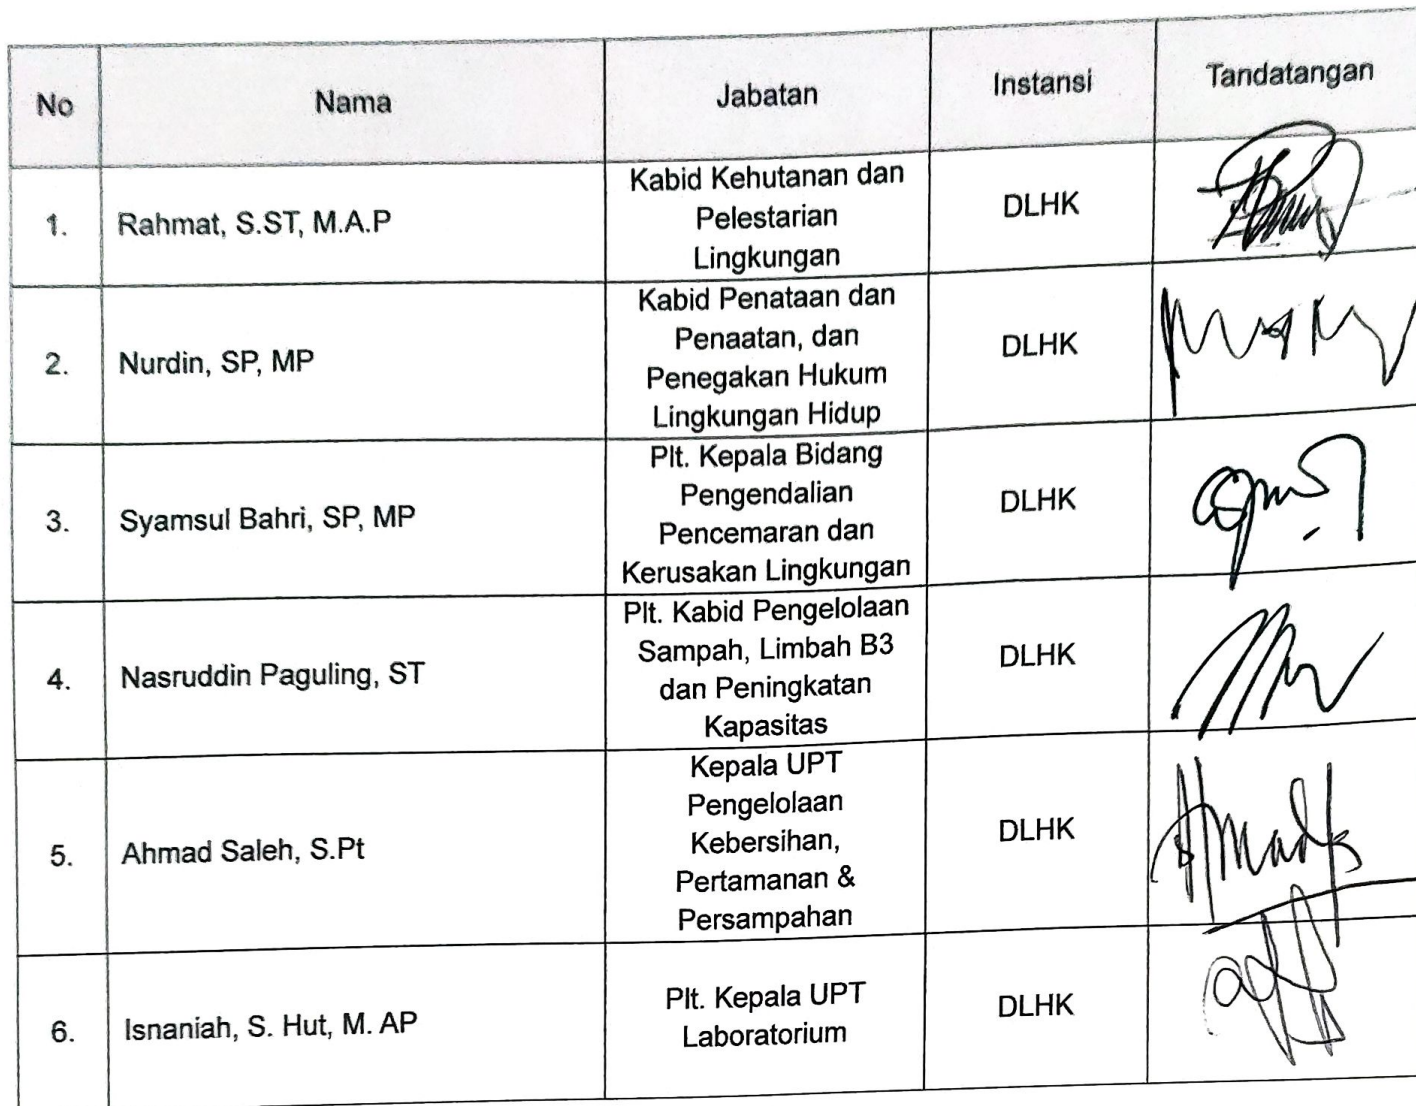 No Nama Jabatan Instansi Tandatangan
1. Rahmat, S.ST, M.A.P Kabid Kehutanan dan
Pelestarian
Lingkungan
DLHK
2. Nurdin, SP, MP Kabid Penataan dan
Penaatan, dan
Penegakan Hukum
Lingkungan Hidup
DLHK
3. Syamsul Bahri, SP, MP Plt. Kepala Bidang
Pengendalian
Pencemaran dan
Kerusakan Lingkungan
DLHK
4. Nasruddin Paguling, ST Plt. Kabid Pengelolaan
Sampah, Limbah B3
dan Peningkatan
Kapasitas
DLHK
5. Ahmad Saleh, S.Pt Kepala UPT
Pengelolaan
Kebersihan,
Pertamanan &
Persampahan
DLHK
6. Isnaniah, S. Hut, M. AP Plt. Kepala UPT
Laboratorium
DLHK